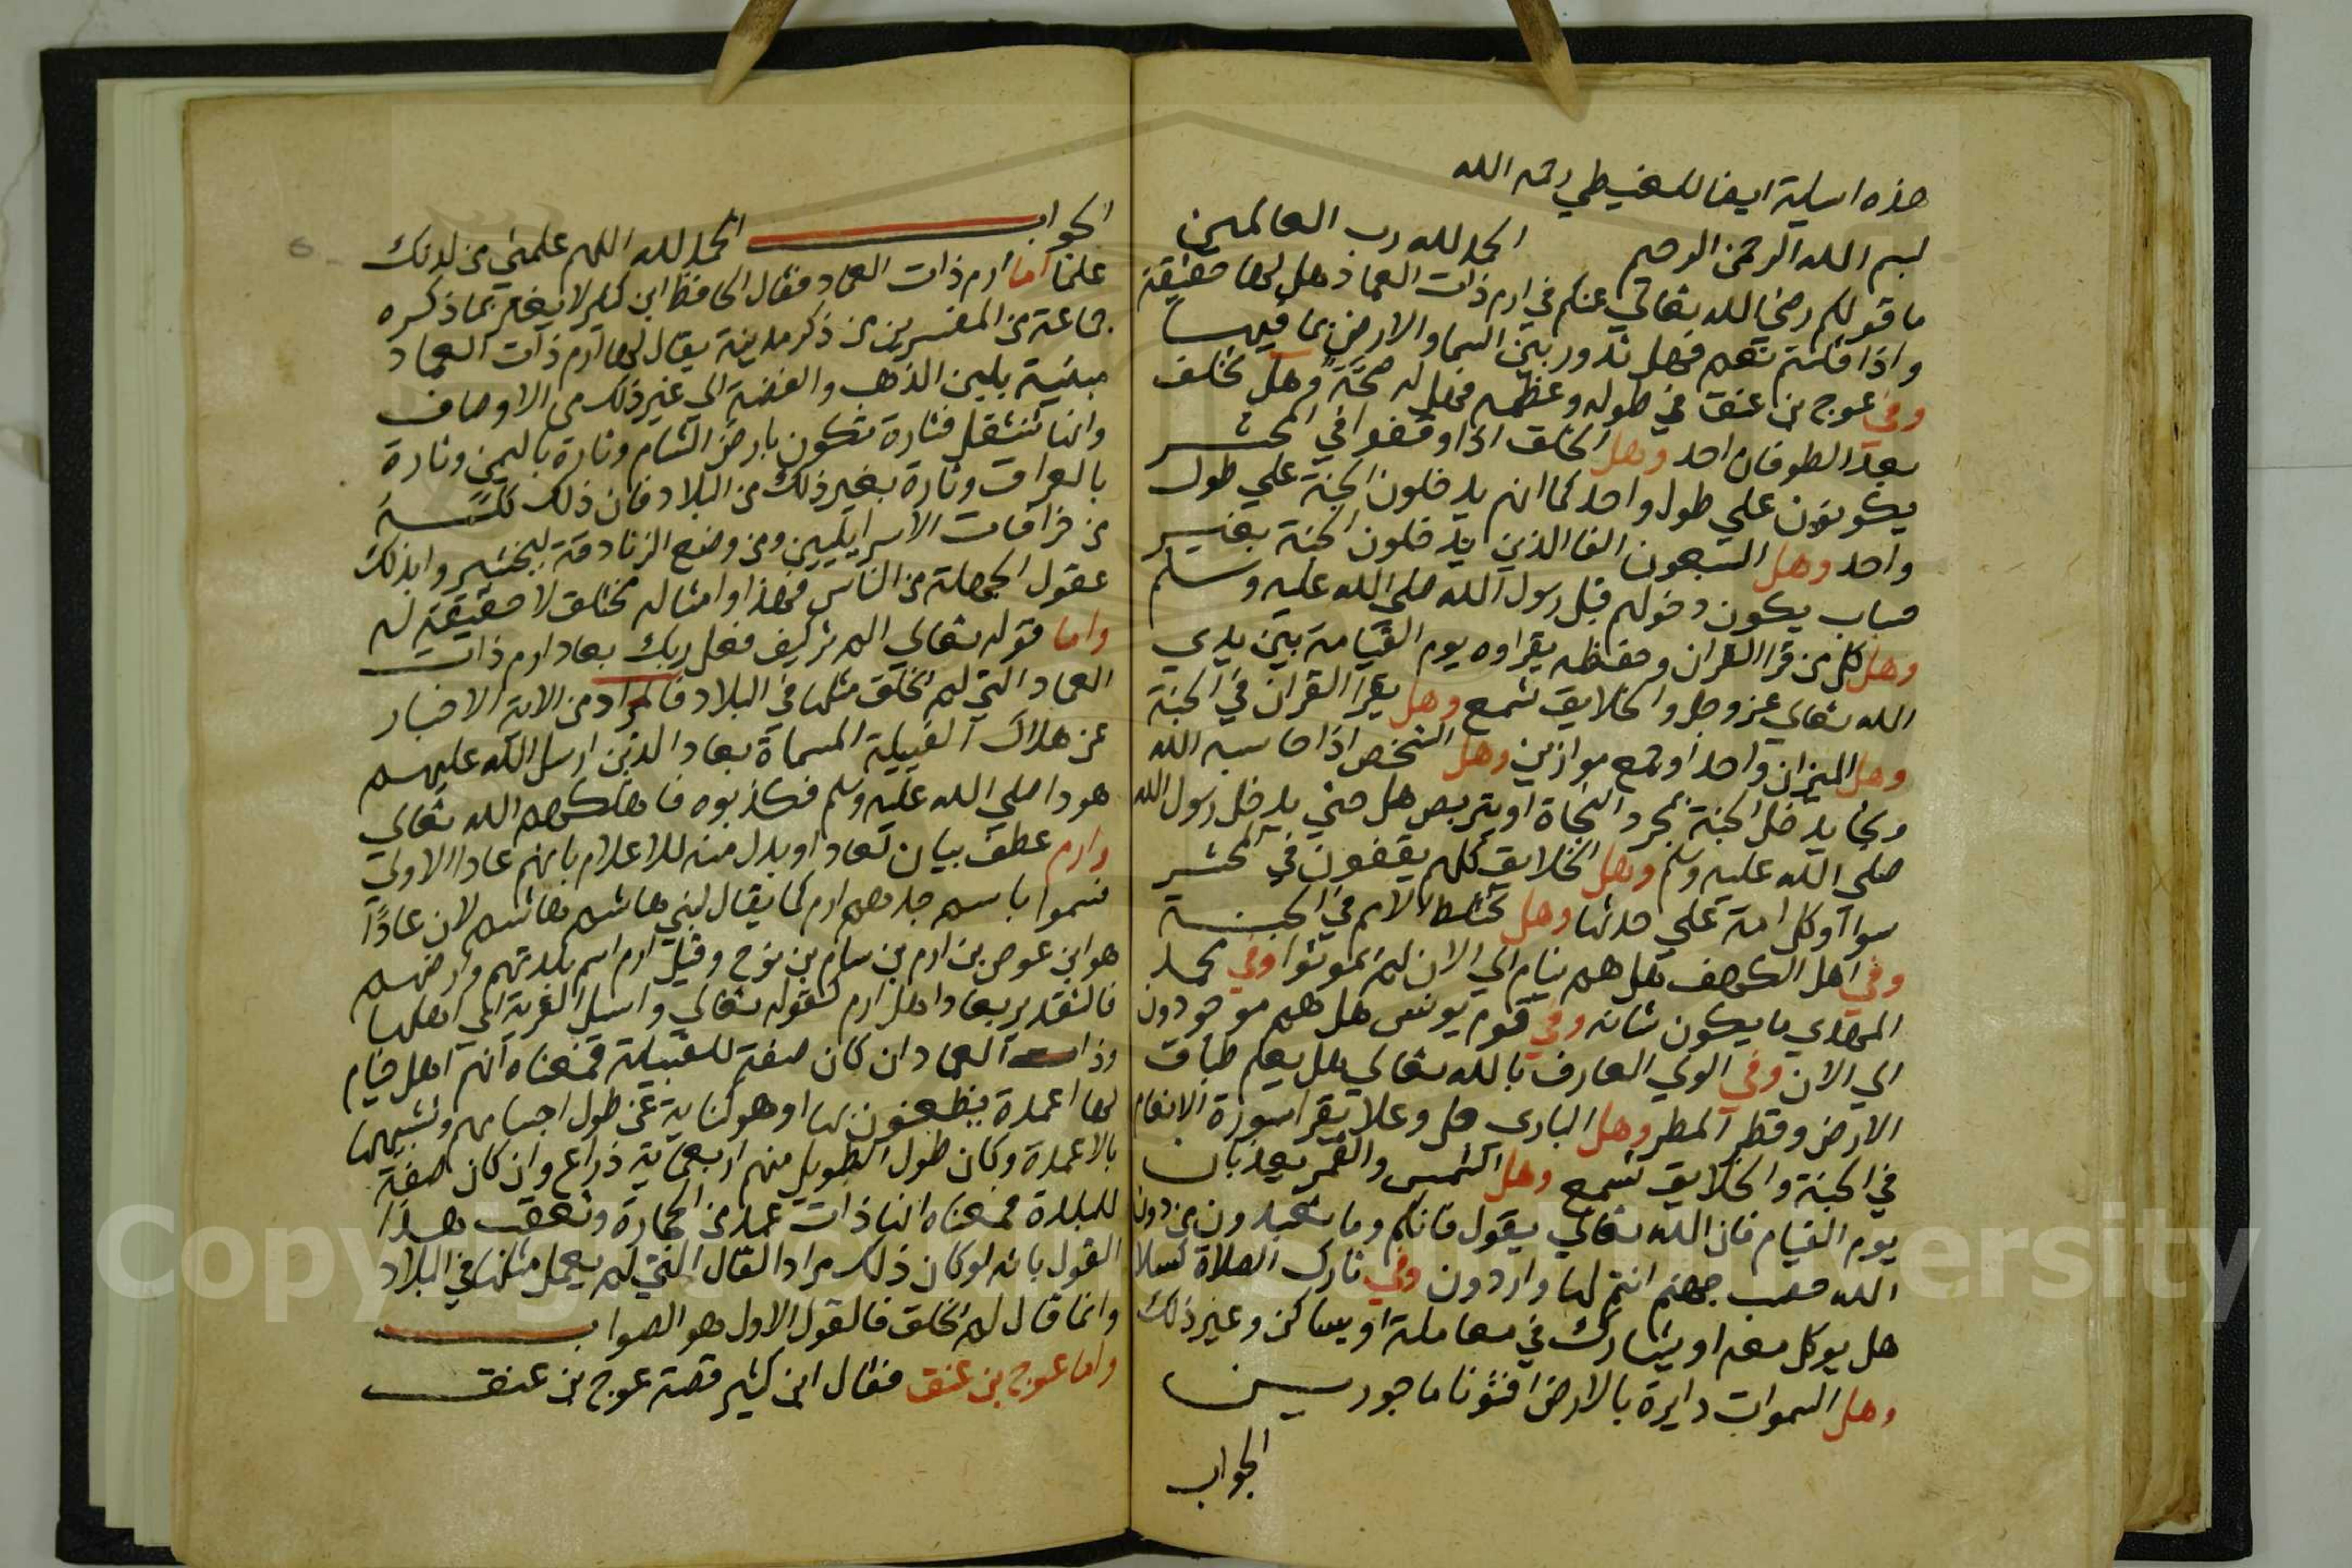 هذه اسيلة ايضا للغيطي رحمه الله
بسم الله الرحمن الرحيم الحمد لله رب العالمين
ما قولكم رضي الله تعالي عنكم في ارم ذات العماد هل لها حقيقة
واذا قلتم نعم فهل تدور بين السما والارض بما فيها
وفي عوج بن عنق في طوله وعظمه فهل له صحة وهل تخلف
بعد الطوفان احد وهل الخلق اذا وقفوا في المحشر
يكونون علي طول واحد كما انهم يدخلون الجنة علي طول
واحد وهل السبعون الفا الذين يدخلون الجنة بغير
حساب يكون دخولهم قبل رسول الله صلي الله عليه وسلم
وهل كل من قرا القران وحفظه يقراوه يوم القيامة بين يدي
الله تعالي عز وجل والخلايق تسمع وهل يقرا القران في الجنة
وهل الميزان واحد او تجمع موازين وهل الشخص اذا حاسبه الله
ونجا يدخل الجنة بمجرد النجاة او يتربص هل حتي يدخل رسول الله
صلي الله عليه وسلم وهل الخلايق كلهم يقفون في المحشر
سوا او كل امة علي حدتها وهل تختلط الامم في الجنة
وفي اهل الكهف هل هم نيام الي الان لم يموتوا وفي محمد
المهدي ما يكون شانه وفي قوم يونس هل هم موجودون
الي الان وفي الولي العارف بالله تعالي هل يعلم طباق
الارض وقطر المطر وهل الباري جل وعلا يقرا سورة الانعام
في الجنة والخلايق تسمع وهل الشمس والقمر يعذبان
يوم القيام فان الله تعالي يقول فانكم وما تعبدون من دون
الله حصب جهنم انتم لها واردون وفي تارك الصلاة كسلا
هل يوكل معه او يشارك في معاملة او يساكن وغير ذلك
وهل السموات دايرة بالارض افتونا ماجورين
الجواب
الجواب الحمد لله اللهم علمني من لدنك
علما اما ارم ذات العماد فقال الحافظ ابن كثير لا يغتر بما ذكره
جماعة من المفسرين من ذكر مدينة يقال لها ارم ذات العماد
مبنية بلبن الذهب والفضة الي غير ذلك من الاوصاف
وانها تنتقل فتارة تكون بارض الشام وتارة باليمن وتارة
بالعراق وتارة بغير ذلك من البلاد فان ذلك كله
من خرافات الاسراييليين ومن وضع الزنادقة ليختبروا بذلك
عقول الجهلة من الناس فهذا وامثاله مختلق لا حقيقة له
واما قوله تعالي الم تر كيف فعل ربك بعاد ارم ذات
العماد التي لم يخلق مثلها في البلاد فالمراد من الاية الاخبار
عن هلاك القبيلة المسماة بعاد الذين ارسل الله عليهم
هودا صلي الله عليه وسلم فكذبوه فاهلكهم الله تعالي
وارم عطف بيان لعاد او بدل منه للاعلام بانهم عاد الاولي
فسموا باسم جدهم ارم كما يقال لبني هاشم هاشم لان عادا
هو ابن عوص بن ارم بن سام بن نوح وقيل ارم اسم بلدتهم وارضهم
فالتقدير بعاد اهل ارم كقوله تعالي واسيل القرية اي اهلها
وذات العماد ان كان صفة للقبيلة فمعناه انهم اهل خيام
لها اعمدة يظعنون بها او هو كناية عن طول اجسامهم وتشبيهها
بالاعمدة وكان طول الطويل منهم اربعماية ذراع وان كان صفة
للبلدة فمعناه انها ذات عمد من الحجارة وتعقب هذا
القول بانه لو كان ذلك مرادا لقال التي لم يعمل مثلها في البلاد
وانما قال لم يخلق فالقول الاول هو الصواب
واما عوج بن عنق فقال ابن كثير قصة عوج بن عنق
Copyright University